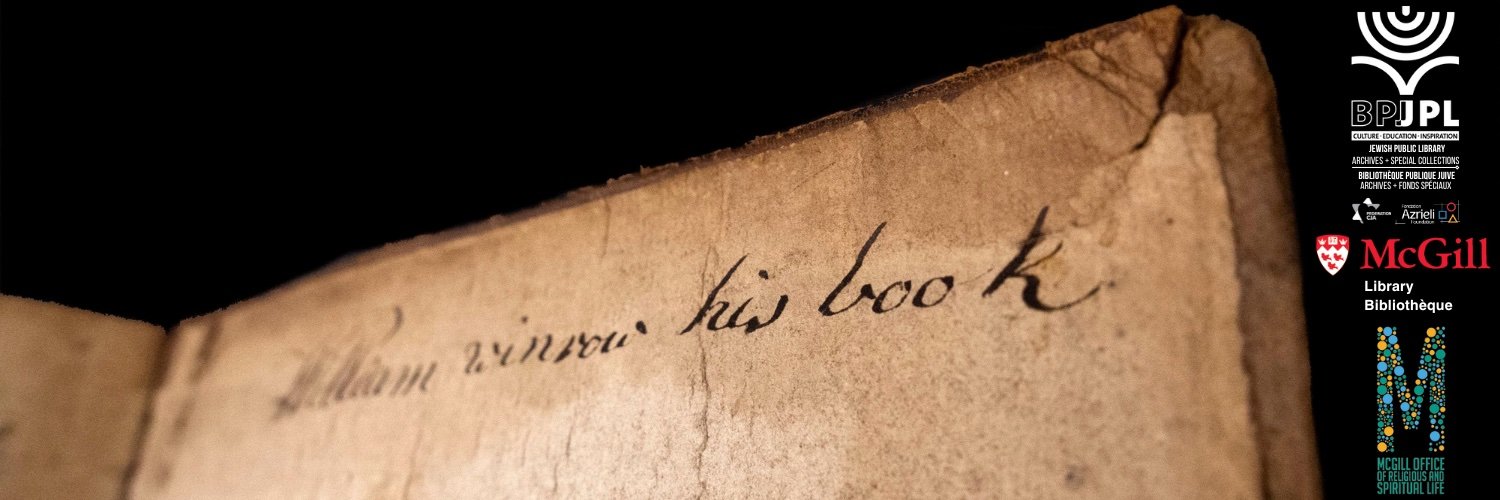 William winrow his book
BPJPL
CULTURE · EDUCATION · INSPIRATION
JEWISH PUBLIC LIBRARY
ARCHIVES + SPECIAL COLLECTIONS
BIBLIOTHÈQUE PUBLIQUE JUIVE
ARCHIVES + FONDS SPÉCIAUX
FEDERATION
CJA
Fondation
Azrieli
Foundation
McGill
Library
Bibliothèque
M
MCGILL OFFICE
OF RELIGIOUS AND
SPIRITUAL LIFE